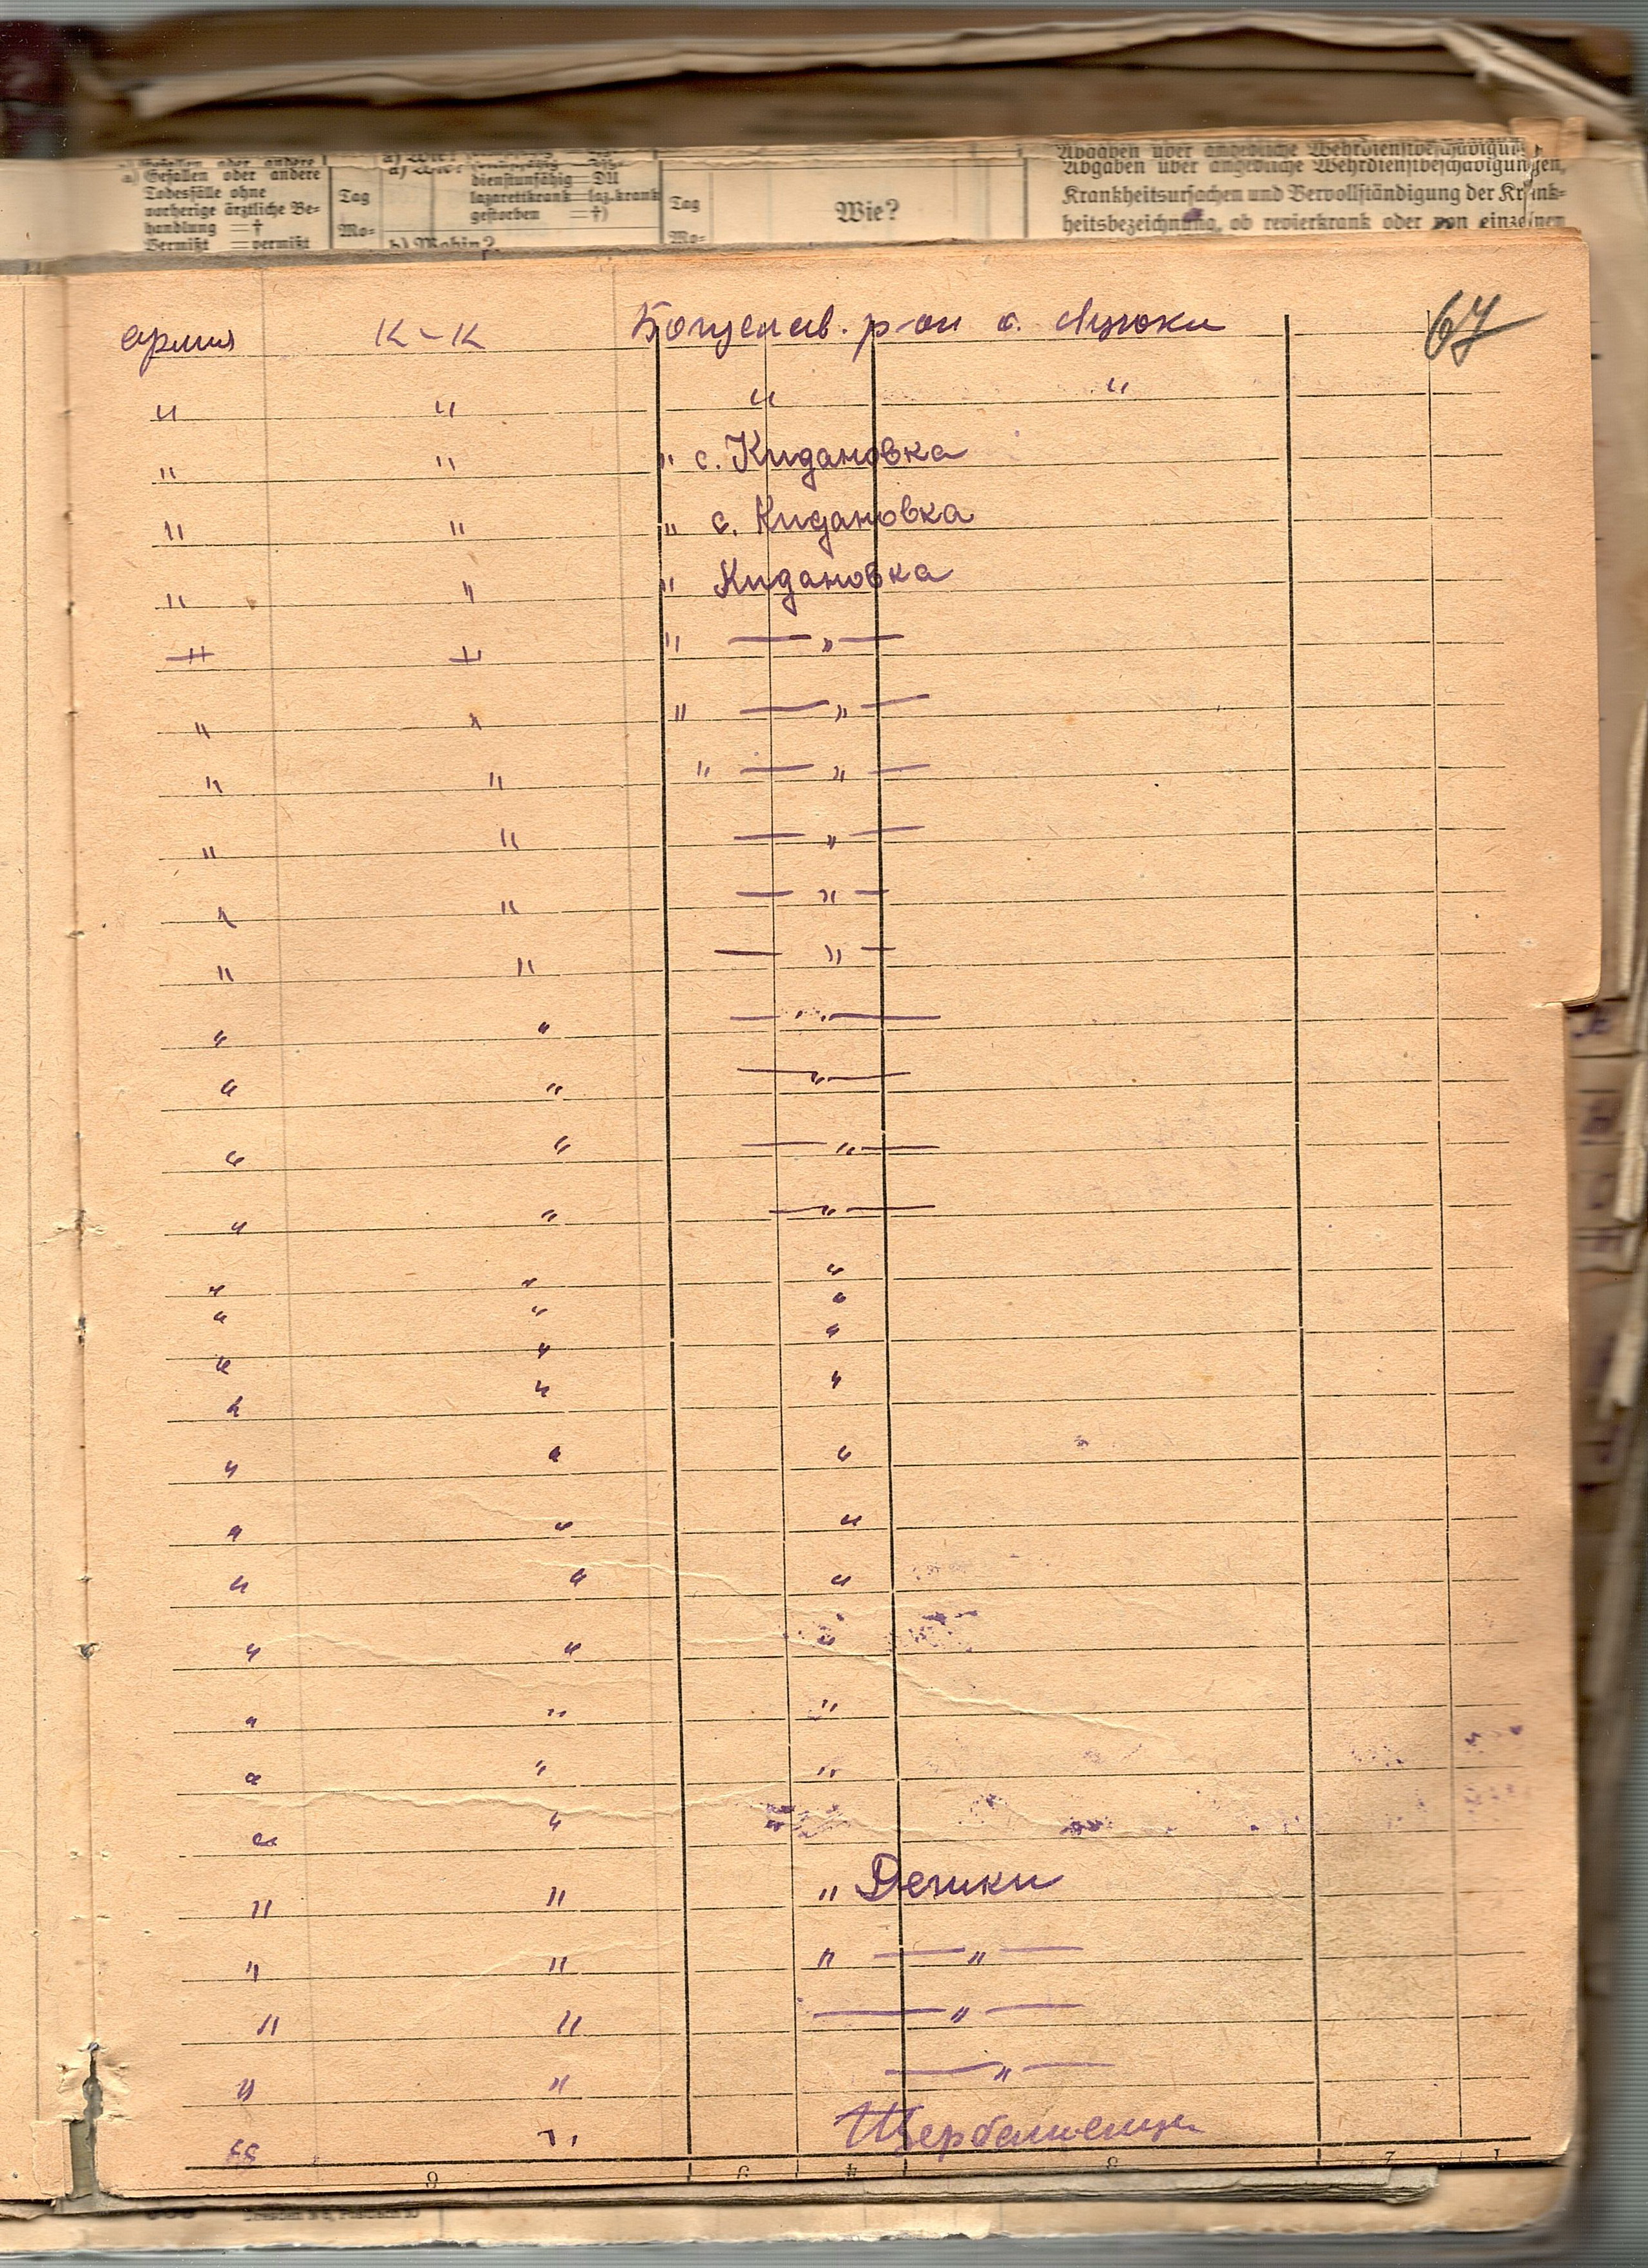 Gefallen oder andere
a) Gefallen oder andere
Todesfälle ohne
vorherige ärztliche Be-
handlung =†
Vermißt =vermißt
Tag
Mo-
dienstunfähig =DU
lazarettkrank=laz.krank
gestorben =†)
b) Wohin?
Tag
Mo-
Wie?
Abgaben über angebliche Wehrdienstbeschädigungen,
Krankheitsursachen und Vervollständigung der Krank-
heitsbezeichnung, ob revierkrank oder von einzelnen
67
армия К-К Богуслав. р-он с. Дацюки
" " " "
" " " с. Кидановка
" " " с. Кидановка
" " " Кидановка
" " " — " —
" " " — " —
" " " — " —
" " — " —
" " — " —
" " — " —
" " — " —
" " — " —
" " — " —
" " — " —
" " "
" " "
" " "
" " "
" " "
" " "
" " "
" " "
" " "
" " "
" " "
" " " Дешки
" " " — " —
" " — " —
" " — " —
" " Щербашенцы
8 5 4 3 2 1